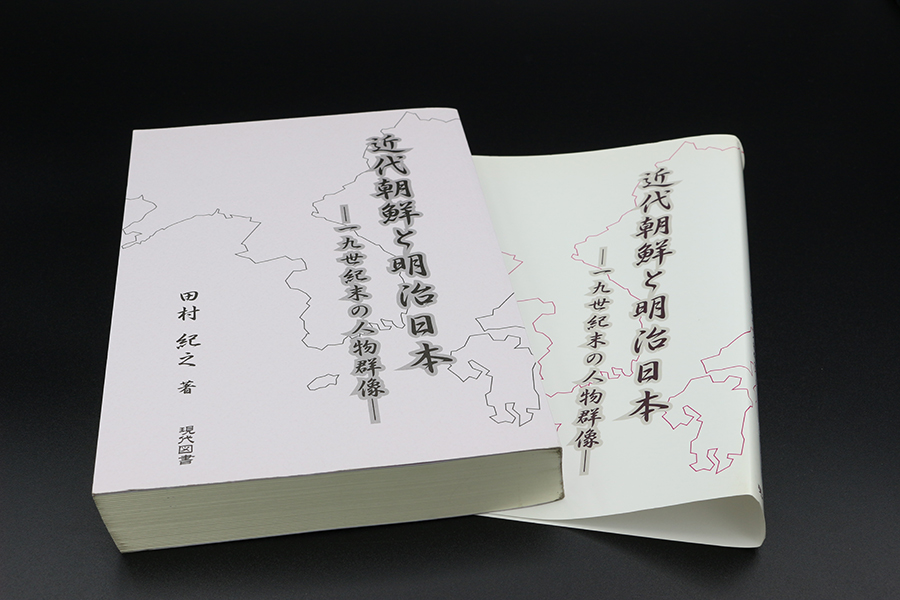 近代朝鮮と明治日本
―一九世紀末の人物群像―
田村 紀之 著
現代図書
近代朝鮮と明治日本
―一九世紀末の人物群像―